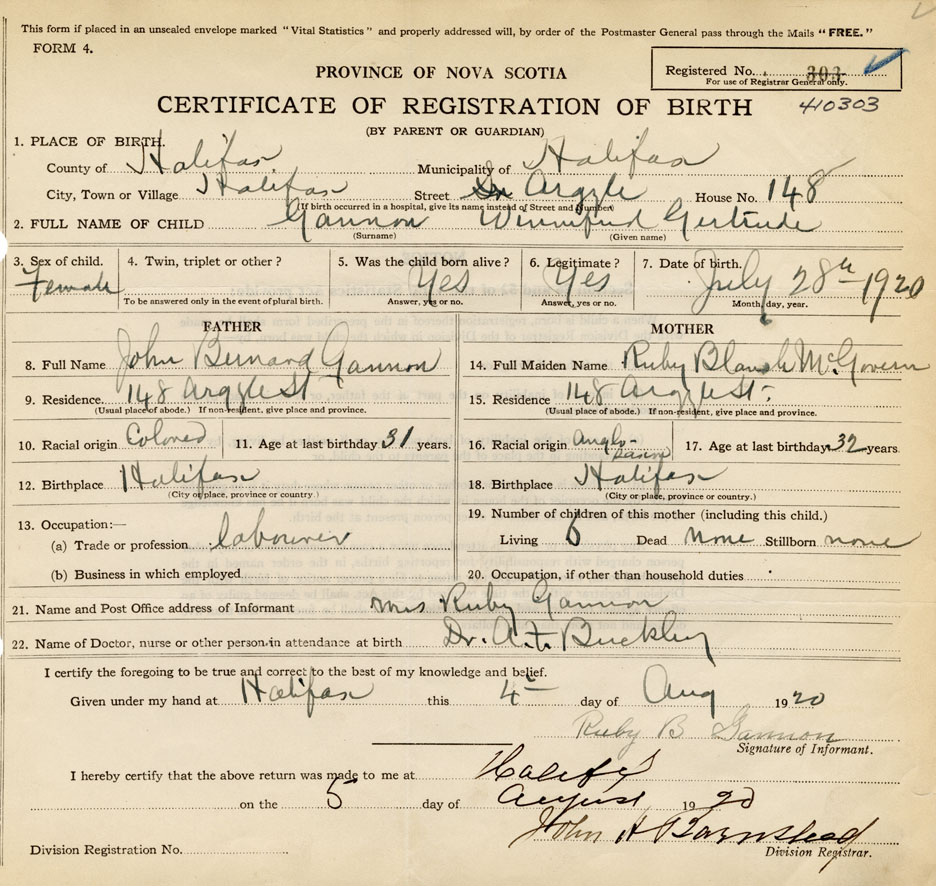 This form if placed in an unsealed envelope marked "Vital Statistics" and properly addressed will, by order of the Postmaster General pass through the Mails "FREE."
FORM 4.
Registered No. 303
For use of Registrar General only.
PROVINCE OF NOVA SCOTIA
CERTIFICATE OF REGISTRATION OF BIRTH 410303
(BY PARENT OR GUARDIAN)
1. PLACE OF BIRTH.
County of Halifax Municipality of Halifax
City, Town or Village Halifax Street Argyle House No. 148
(If birth occurred in a hospital, give its name instead of Street and Number)
2. FULL NAME OF CHILD Gannon Winnifred Gertrude
(Surname) (Given name)
3. Sex of child. 4. Twin, triplet or other? 5. Was the child born alive? 6. Legitimate? 7. Date of birth.
Female Yes Yes July 28th 1920
To be answered only in the event of plural birth. Answer, yes or no. Answer, yes or no. Month, day, year.
FATHER MOTHER
8. Full Name John Bernard Gannon 14. Full Maiden Name Ruby Blanch McGovern
9. Residence. 148 Argyle St 15. Residence 148 Argyle St.
(Usual place of abode.) If non-resident, give place and province. (Usual place of abode.) If non-resident, give place and province.
10. Racial origin Colored 11. Age at last birthday 31 years. 16. Racial origin Anglo-Saxon 17. Age at last birthday 32 years.
12. Birthplace Halifax 18. Birthplace Halifax
(City or place, province or country.) (City or place, province or country.)
13. Occupation:— 19. Number of children of this mother (including this child.)
(a) Trade or profession labourer Living 6 Dead none Stillborn none
(b) Business in which employed 20. Occupation, if other than household duties
21. Name and Post Office address of Informant Mrs Ruby Gannon
22. Name of Doctor, nurse or other person in attendance at birth Dr. A. Buckley
I certify the foregoing to be true and correct to the best of my knowledge and belief.
Given under my hand at Halifax this 4 day of Aug 1920
Ruby B Gannon
Signature of Informant.
I hereby certify that the above return was made to me at Halifax
on the 5 day of August 1920
John H Barnstead
Division Registration No. Division Registrar.